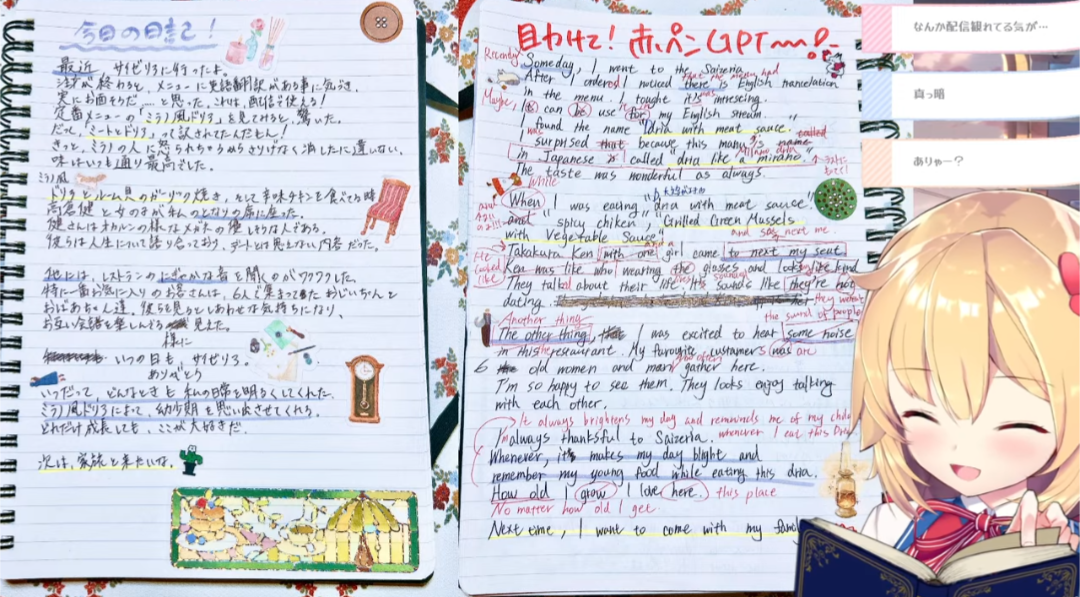 今日の日記!
最近 サイゼリヤに行ったよ。
注文が終わると、メニューに英語翻訳がある事に気づき、
実にお面そうだ……と思った。これは、配信で使える!
定番メニューの「ミラノ風ドリア」を見てみると、驚いた。
だって、「ミートとドリア」って訳されてたんだもん!
きっと、ミラノの人に怒られちゃうからさりげなく消したに違いない。
味はいつも通り最高でした。
ミラノ風
ドリアとムール貝のガーリック焼き、そして辛味チキンを食べてる時
高倉健と女の子が私のとなりの席に座った。
健さんはオカルンの様なメガネの優しそうな人である。
彼らは人生について語り合っており、デートとは思えない内容だった。
他には、レストランのにぎやかな音を聞くのがワクワクした。
特に一番お気に入りのお客さんは、6人で集まって来たおじいちゃんと
おばあちゃん達、彼らを見るとしあわせな気持ちになり、
お互い会話を楽しんでる 見えた。
様に
いつの日も、サイゼリヤ。
ありがとう
いつだって、どんなときも 私の日常を明るくしてくれた。
ミラノ風ドリアによって、幼少期を思い出させてくれる。
どれだけ成長しても、ここが大好きだ。
次は、家族と来たいな。
赤ペンGPT〜〜!
Recently
Someday, I went to the Saizeria.
that the menu had
After I ordered I noticed there is English translation
in the menu. I tought it's intreseing.
was
Maybe, I can be use for my English stream.
it in
I found the name "Dria with meat sauce."
was
I surprised that because this many's name
called
in Japanese is called "dria like a mirano."
Milano dria
The taste was wonderful as always.
While
When I was eating "dria with meat sauce"
and "spicy chiken," "Grilled Green Mussels
with Vegetable Sauce"
and sat next me.
and a
Takakura Ken with one girl came to next my seat.
He looked like
Ken was like who wearing the glasses and looks like kind
They talked about their life. It's sounds like they're not
dating.
they weren't
the sound of people
Another thing
The other thing, I was excited to hear some noise
in this restaurant. My favourite custamer's was are
the
6 old women and men gather here.
who often
I'm so happy to see them. They looks enjoy talking
with each other.
It always brightens my day and remminds me of my child
whenever I eat this Dria
I'm always thankful to Saizeria.
Whenever, it's makes my day blight and
remember my young food while eating this dria.
How old I grow I love here. this place
No matter how old I get.
Next time, I want to come with my famil
なんか配信観れてる気が…
真っ暗
ありゃー?